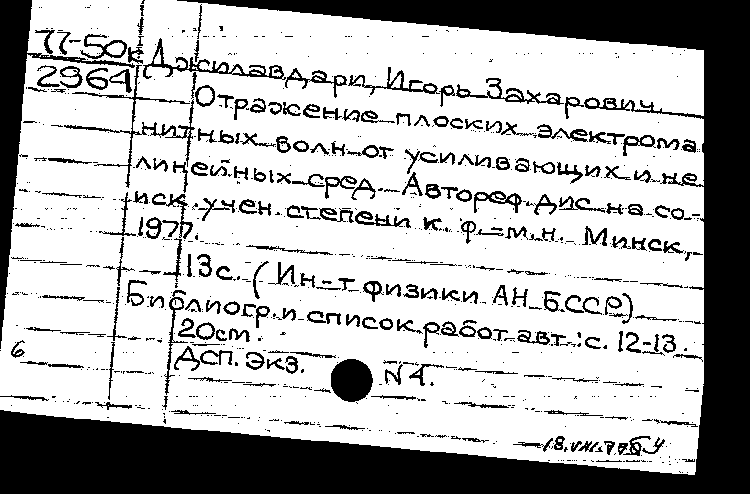 77-50к Джилавдари, Игорь Захарович.
2964
Отражение плоских электрома
нитных волн от усиливающих и не
линейных сред. Автореф. дис. на со-
иск. учен. степени к. ф.=м.н. Минск,
1977.
13с. (Ин-т физики АН БССР)
Библиогр. и список работ авт.: с. 12-13.
20см.
ДСП. Экз. N 4.
6
18.VIII.77